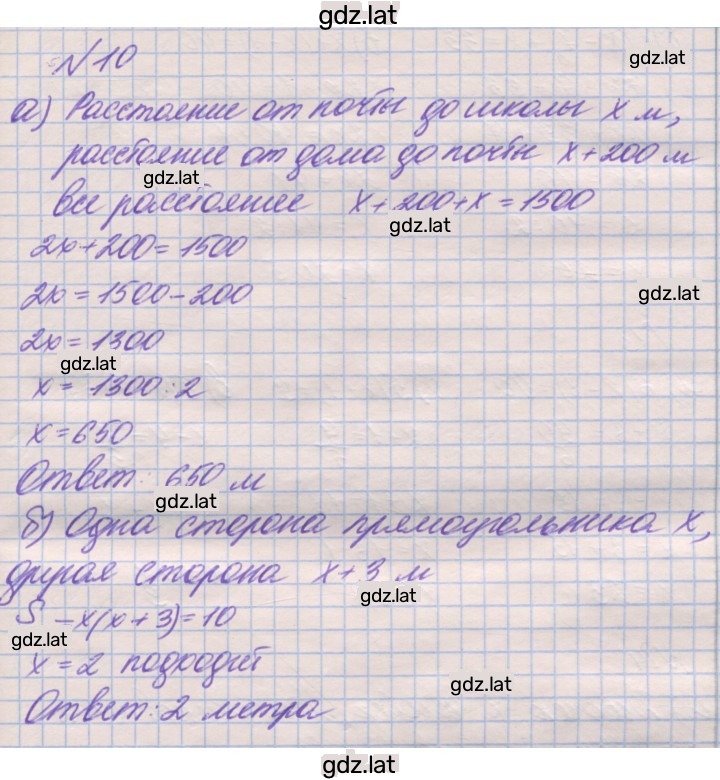 gdz.lat
№10
gdz.lat
а) Расстояние от почты до школы x м,
расстояние от дома до почты x+200 м
gdz.lat
все расстояние x+200+x=1500
gdz.lat
2x+200=1500
2x=1500-200
gdz.lat
2x=1300
gdz.lat
x=1300:2
x=650
Ответ: 650 м
gdz.lat
б) Одна сторона прямоугольника x,
другая сторона x+3 м
gdz.lat
S-x(x+3)=10
gdz.lat
x=2 подходит
gdz.lat
Ответ: 2 метра
gdz.lat